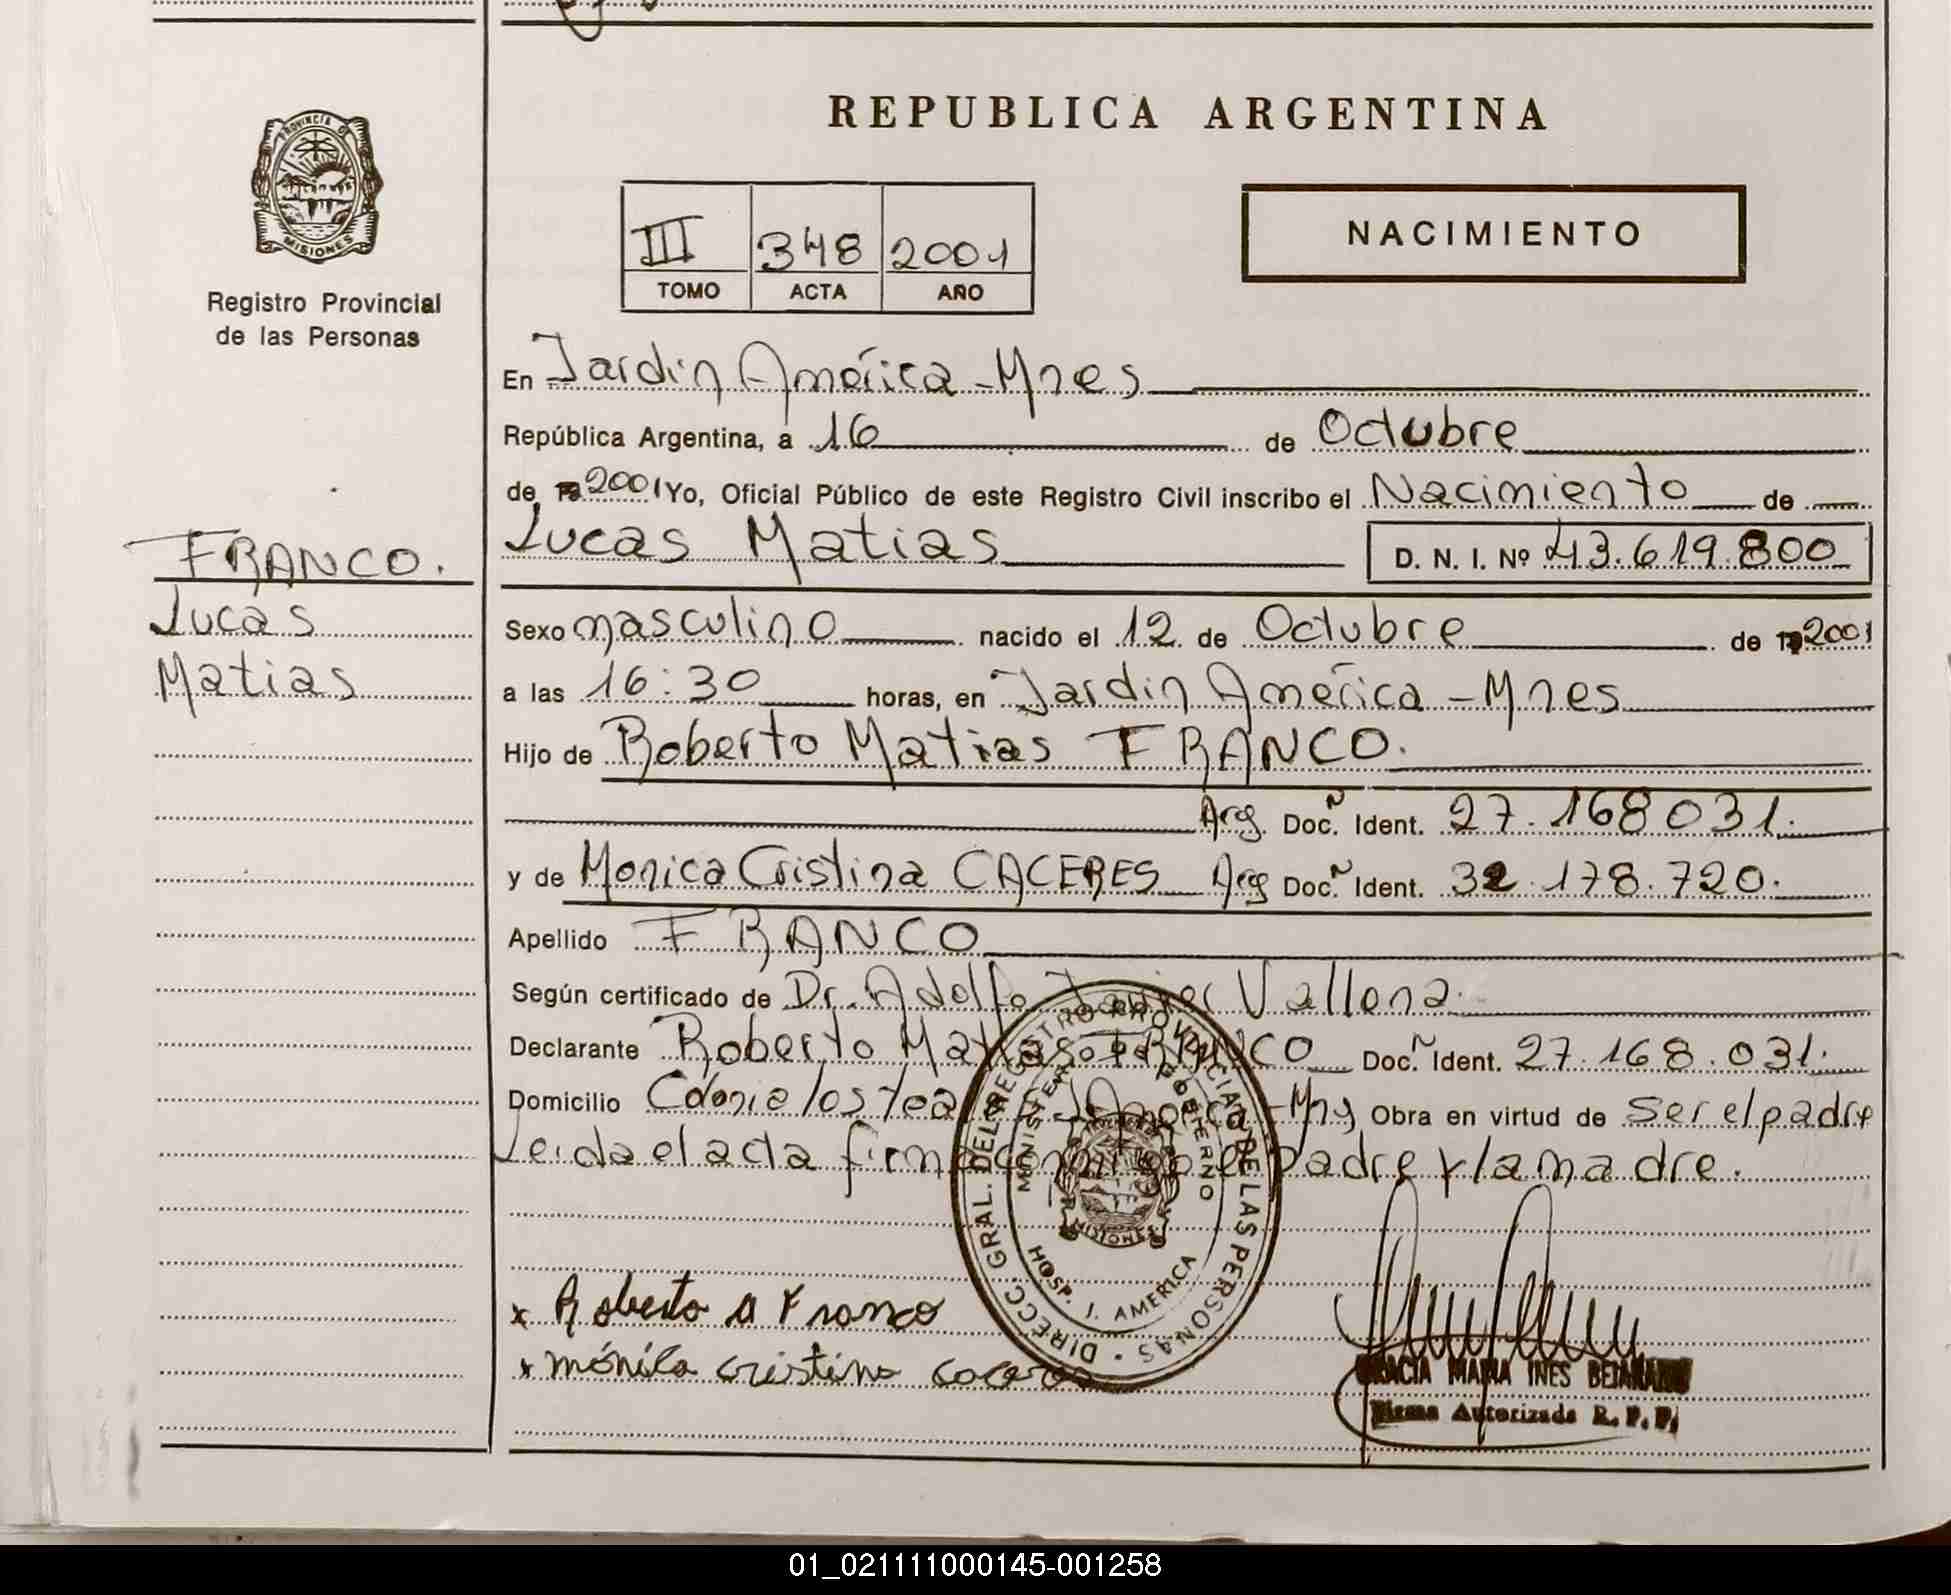 REPUBLICA ARGENTINA
PROVINCIA DE
MISIONES
Registro Provincial
de las Personas
III 348 2001
TOMO ACTA AÑO
NACIMIENTO
En Jardin América - Mnes
República Argentina, a 16 de Octubre
de 19 2001 Yo, Oficial Público de este Registro Civil inscribo el Nacimiento de
Lucas Matias D. N. I. Nº 43.619.800
FRANCO.
Lucas
Matias
Sexo masculino nacido el 12 de Octubre de 19 2001
a las 16:30 horas, en Jardin América - Mnes
Hijo de Roberto Matias FRANCO.
Arg. Doc. Ident. 27.168031.
y de Monica Cristina CACERES Arg Doc. Ident. 32.178.720.
Apellido FRANCO
Según certificado de Dr. Adolfo Javier Vallona.
Declarante Roberto Matias FRANCO Doc. Ident. 27.168.031.
Domicilio Colonia los Obra en virtud de ser el padre
Leida el acta firma conmigo el Padre y la madre.
DIRECC. GRAL. DEL REGISTRO PROVINCIAL DE LAS PERSONAS
MINISTERIO DE GOBIERNO
MISIONES
HOSP. J. AMERICA
x Roberto M Franco
x mónica cristina caceres
GRACIA MARIA INES BEJARANO
Firma Autorizada R. P. P.
01_021111000145-001258